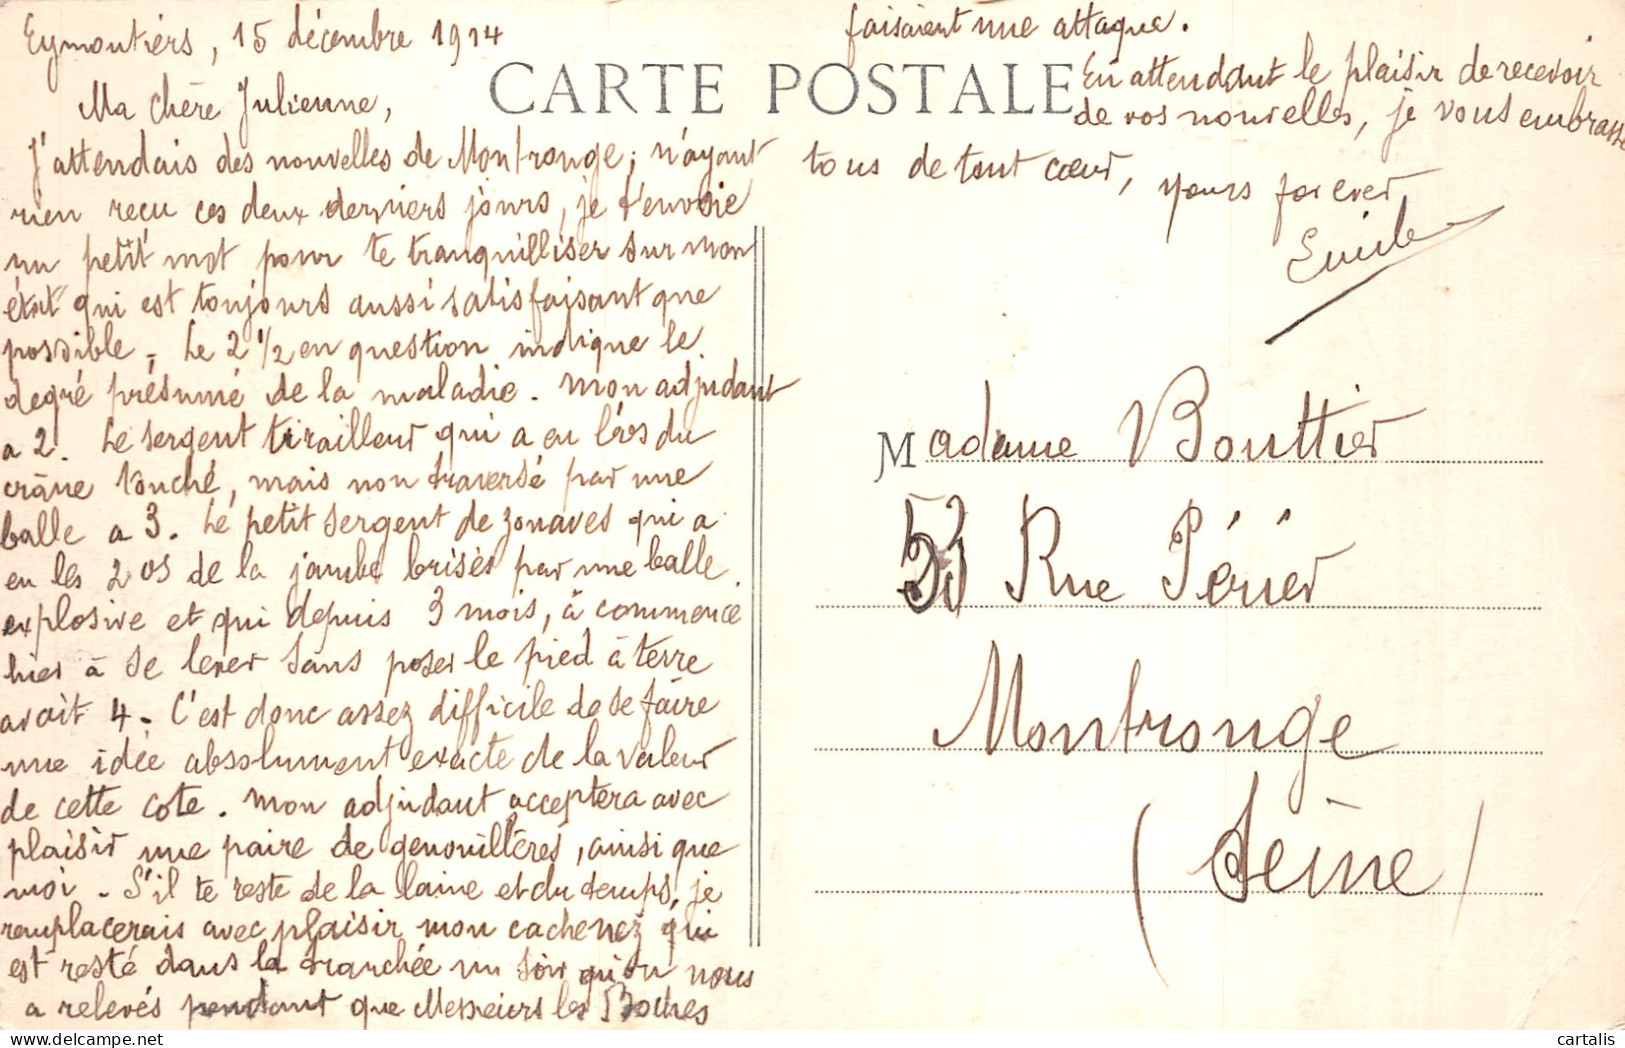 Eymoutiers, 15 décembre 1914
Ma chère Julienne,
J'attendais des nouvelles de Montrouge ; n'ayant
rien reçu ces deux derniers jours, je t'envoie
un petit mot pour te tranquilliser sur mon
état qui est toujours aussi satisfaisant que
possible. Le 2 1/2 en question indique le
degré présumé de la maladie. Mon adjudant
a 2. Le sergent tirailleur qui a eu l'os du
crâne touché, mais non traversé par une
balle a 3. Le petit sergent de zouaves qui a
eu les 2 os de la jambe brisés par une balle
explosive et qui depuis 3 mois, à commencé
hier à se lever sans poser le pied à terre
avait 4. C'est donc assez difficile de se faire
une idée absolument exacte de la valeur
de cette cote. Mon adjudant acceptera avec
plaisir une paire de genouillères, ainsi que
moi. S'il te reste de la laine et du temps, je
remplacerais avec plaisir mon cachenez qui
est resté dans la tranchée un soir qu'on nous
a relevés pendant que Messieurs les Boches
faisaient une attaque.
En attendant le plaisir de recevoir
de vos nouvelles, je vous embrasse
tous de tout cœur, yours forever,
Emile
CARTE POSTALE
Madame Bouttier
53 Rue Périer
Montrouge
(Seine)
cartalis